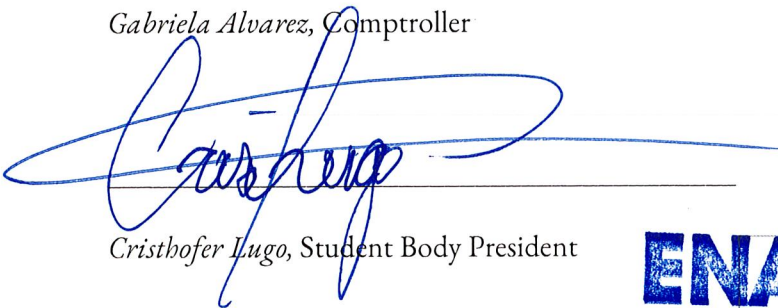 Gabriela Alvarez, Comptroller
Cris Lugo
Cristhofer Lugo, Student Body President
ENA